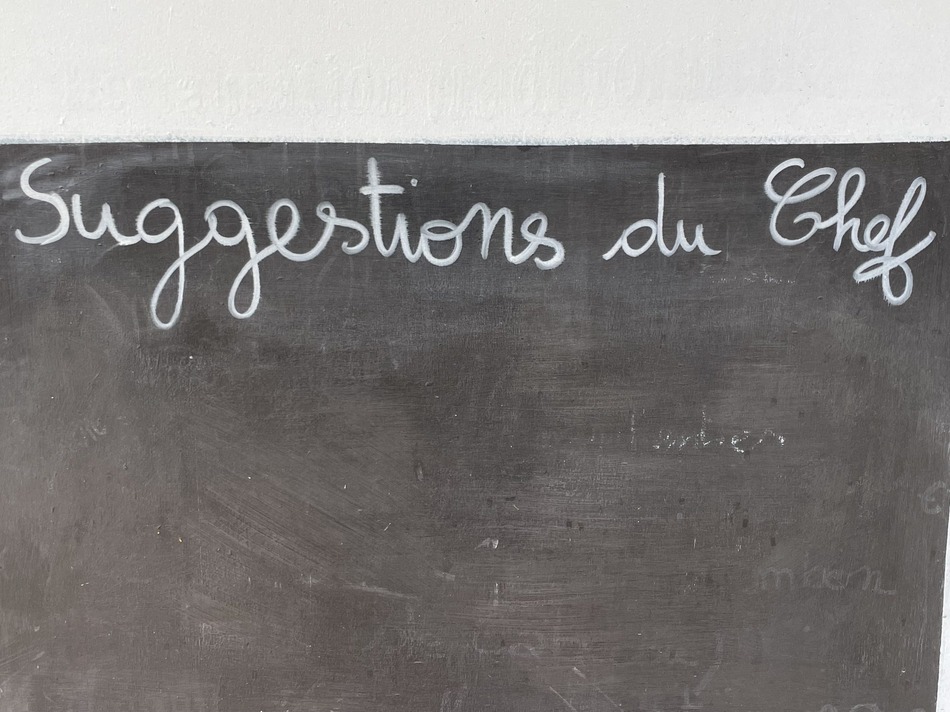 Suggestions du Chef